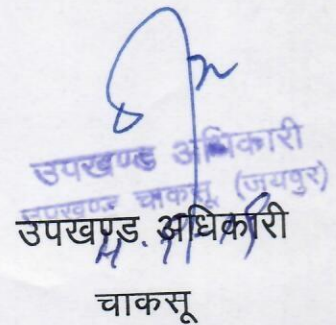 उपखण्ड अधिकारी
उपखण्ड चाकसू (जयपुर)
उपखण्ड अधिकारी
चाकसू